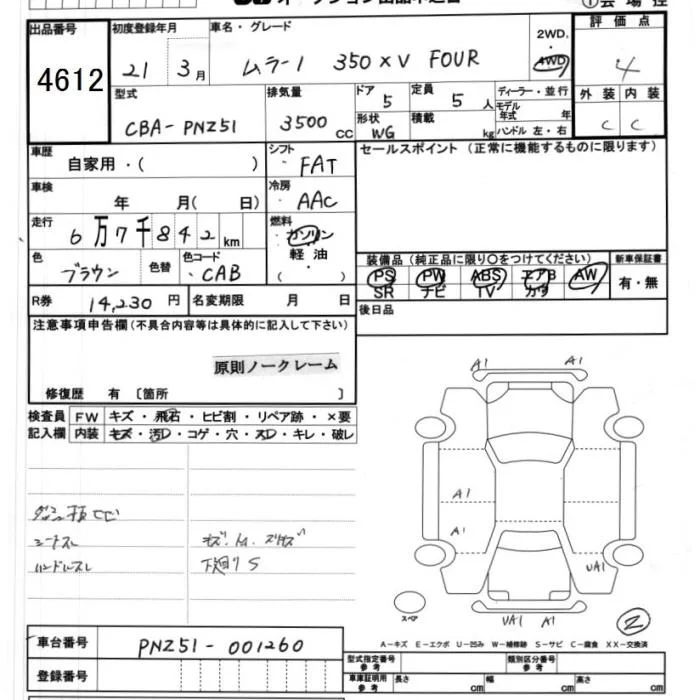 出品番号 4612
初度登録年月 21 3月
車名・グレード ムラーノ 350XV FOUR
2WD. 4WD
評価点 4
外装 内装
C C
型式 CBA-PNZ51
排気量 3500 CC
ドア 5
形状 WG
定員 5 人
積載 kg
ディーラー・並行
モデル年式 年
ハンドル 左・右
車歴 自家用・( )
シフト FAT
セールスポイント (正常に機能するものに限ります)
車検 年 月( 日)
冷房 AAC
走行 6万7千842km
燃料 ガソリン・軽油・( )
色 ブラウン 色替
色コード CAB
装備品 (純正品に限り○をつけてください)
新車保証書
PS PW ABS エアB AW
SR ナビ TV カワ
有・無
R券 14,230円
名変期限 月 日
後日品
注意事項申告欄 (不具合内容等は具体的に記入して下さい)
原則ノークレーム
修復歴 有 〔箇所 〕
検査員記入欄
FW キズ・飛石・ヒビ割・リペア跡・×要
内装 キズ・汚D・コゲ・穴・スD・キレ・破レ
シートスレ
ハンドルスレ
下廻りS
A1 A1
A1
A1
UA1
UA1 A1
スペア
2
A-キズ E-エクボ U-凹み W-補修跡 S-サビ C-腐食 XX-交換済
車台番号 PNZ51-001260
登録番号
型式指定番号 参考
類別区分番号 参考
車庫証明用 参考 長さ cm 幅 cm 高さ cm